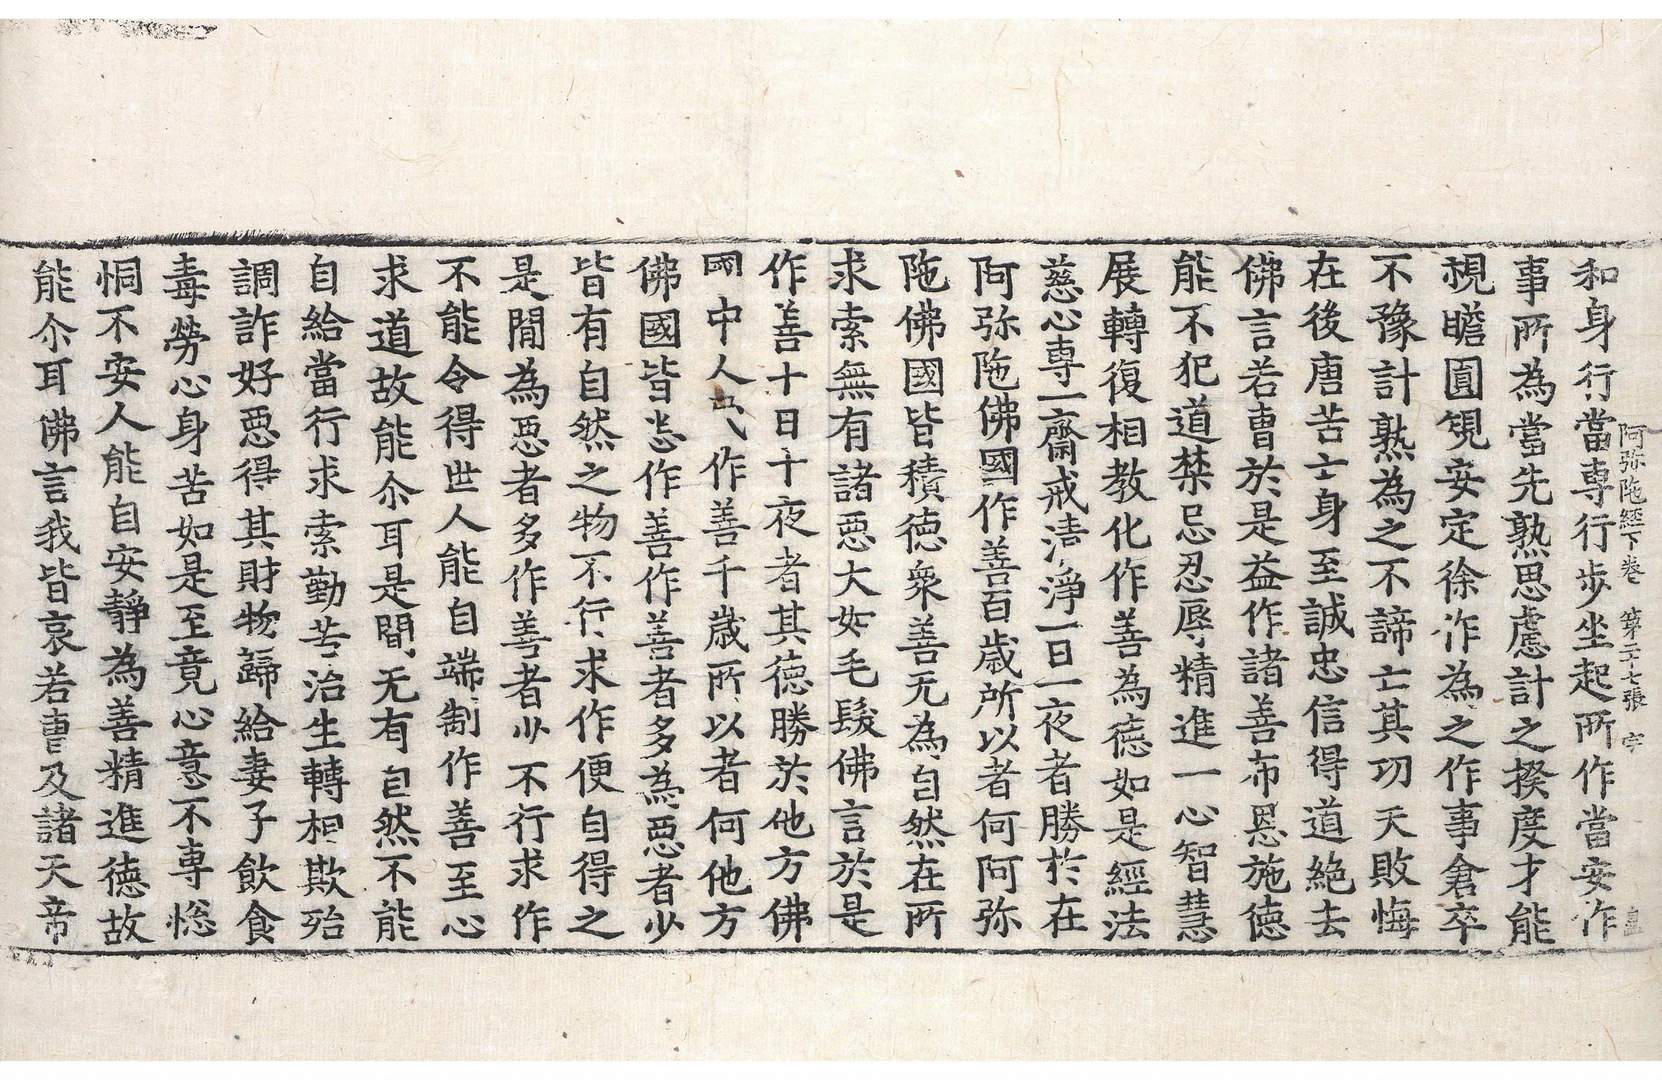 阿弥陁經下卷 第二十七張 字
和身行當專行步坐起所作當安作
事所為當先熟思慮計之揆度才能
視瞻圓䂓安定徐作為之作事倉卒
不豫計熟為之不諦亡其功夫敗悔
在後唐苦亡身至誠忠信得道絶去
佛言若曹於是益作諸善布恩施德
能不犯道禁忌忍辱精進一心智慧
展轉復相教化作善為德如是經法
慈心專一齋戒清淨一日一夜者勝於在
阿弥陁佛國作善百歳所以者何阿弥
陁佛國皆積德衆善无為自然在所
求索無有諸惡大如毛髮佛言於是
作善十日十夜者其德勝於他方佛
國中人民作善千歳所以者何他方
佛國皆悉作善作善者多為惡者少
皆有自然之物不行求作便自得之
是間為惡者多作善者少不行求作
不能令得世人能自端制作善至心
求道故能尒耳是間无有自然不能
自給當行求索勤苦治生轉相欺殆
調詐好惡得其財物歸給妻子飲食
毒勞心身苦如是至竟心意不專惚
恫不安人能自安靜為善精進德故
能尒耳佛言我皆哀若曹及諸天帝